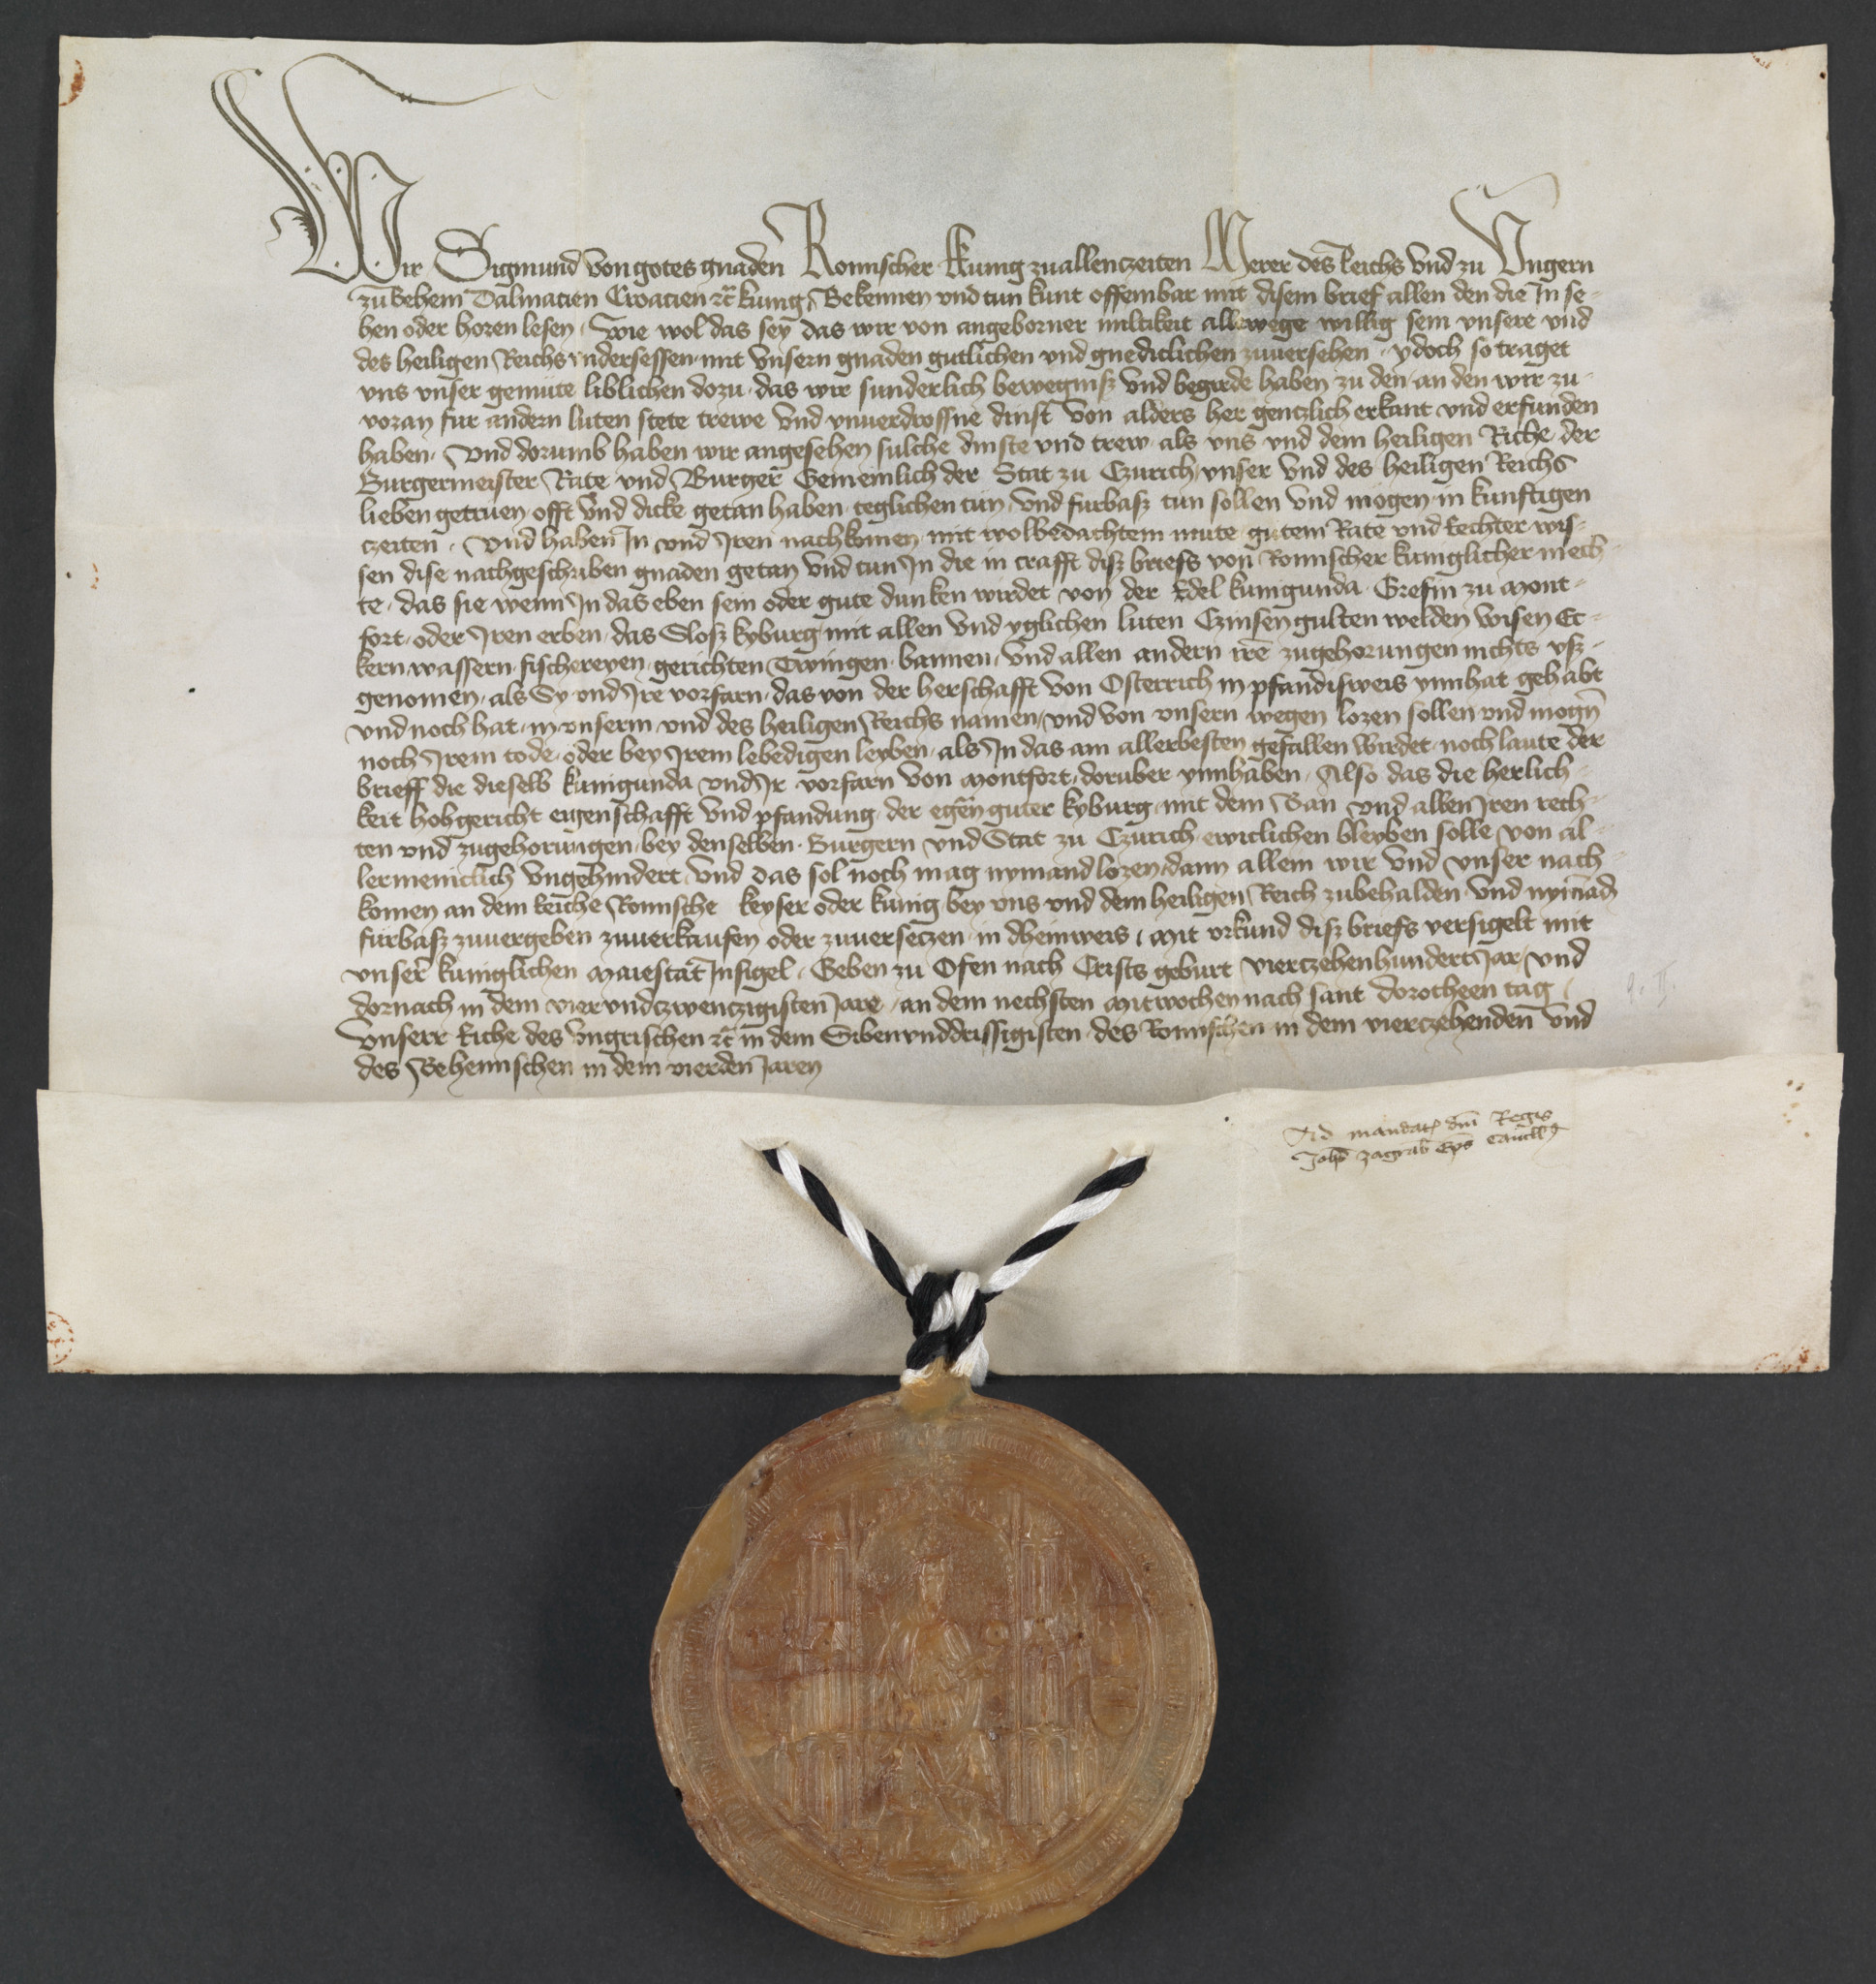 Wir Sigmund von gotes gnaden Romischer kunig zuallenczeiten Merer des Reichs vnd zu Vngern
zu Behem Dalmatien Croatien ꝛc̄ kunig, Bekennen vnd tun kunt offembar mit disem brief allen den die In se-
hen oder horen lesen, Wie wol das sey das wir von angeborner miltikeit allewege willig sein vnsere vnd
des heiligen Reichs vndersessen mit vnsern gnaden gutlichen vnd gnediclichen zuuersehen, ydoch so traget
vns vnser gemüte liblichen dozu, das wir sunderlich bewegniß vnd begirde haben zu den an den wir zu-
voran fur andern luten stete trewe vnd vnuerdrossne dinst von alders her genczlich erkant vnd erfunden
haben, Vnd dorumb haben wir angesehen sulche dinste vnd trew, als vns vnd dem heiligen Riche, der
Burgermeister Rate vnd Burger Gemeinlich der Stat zu Czurich vnser vnd des heiligen Reichs
lieben getruen offt vnd dicke getan haben, teglichen tun, vnd furbaß tun sollen vnd mogen in kunftigen
czeiten, Vnd haben In vnd Iren nachkomen mit wolbedachtem mute, gutem Rate vnd Rechter wis-
sen dise nachgeschriben gnaden getan vnd tun In die in crafft diß briefs von Romischer kuniglicher mech-
te, das sie wenn In das eben sein oder gute dunken wirdet von der Edel kunigunda, Grefin zu Mont-
fort, oder Iren erben, das Sloß kyburg mit allen vnd yglichen luten Czinsen gulten welden wisen Ec-
kern wassern, fischereyen, gerichten Twingen, bannen, vnd allen andern irē zugehorungen nichts vß-
genomen, als Sy vnd Ire vorfarn, das von der herschafft von Osterrich in pfandisweis ynnhat gehabt
vnd noch hat, in vnserm vnd des heiligen Reichs namen, vnd von vnsern wegen lozen sollen vnd mogn̄
noch Irem tode, oder bey Irem lebedigen leyben, als In das am allerbesten gefallen wirdet, noch laute der
brieff die dieselb kunigunda vnd Ir vorfarn von Montfort, doruber ynnhaben, Also das die herlich-
keit hohgericht eigenschafft vnd pfandung, der egen̄ guter kyburg, mit dem Ban vnd allen Iren rech-
ten vnd zugehorungen, bey denselben Burgern vnd Stat zu Czurich, ewiclichen bleyben solle von al-
lermeniclich vngehindert, vnd das sol noch mag nymand lozen, dann allein wir vnd vnser nach-
komen an dem Reiche Romische keyser oder kunig, bey vns vnd dem heiligen Reich zubehalden, vnd nymād
furbaß zuuergeben zuuerkaufen oder zuuerseczen, in dheinweis, Mit vrkund diß briefs versigelt mit
vnser kuniglichen Maiestat Insigel, Geben zu Ofen nach Crists geburt vierczehenhundert Jar, vnd
dornach in dem viervndczwenczigisten Jare, an dem nechsten Mitwochen nach sant dorotheen tag,
Vnserr Riche des Vngrischen ꝛc̄ in dem Sibenvnddrissigisten des Romischen in dem vierczehenden vnd
des Behemischen in dem vierden Jaren
Ad mandatꝫ dn̄i Regis
Johēs zagrabn̄ Ep̄s Cancelłꝰ